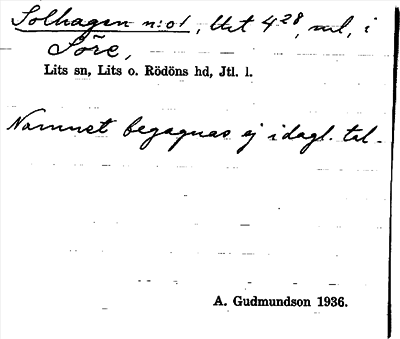 Solhagen n:o 1, litt 4²⁸, , i
Söre,
Lits sn, Lits o. Rödöns hd, Jtl. l.
Namnet begagnas ej i dagl. tal.
A. Gudmundson 1936.